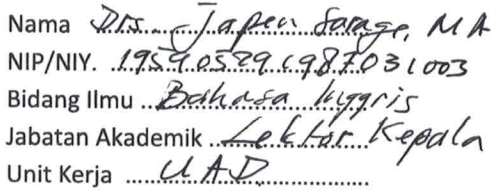 Nama Drs. Japen Sarage, MA
NIP/NIY. 195905291987031003
Bidang Ilmu Bahasa Inggris
Jabatan Akademik Lektor Kepala
Unit Kerja UAD